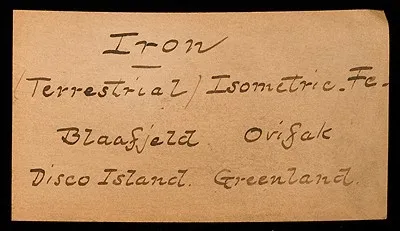 Iron
(Terrestrial) Isometric. Fe-
Blaafjeld Ovifak
Disco Island. Greenland.